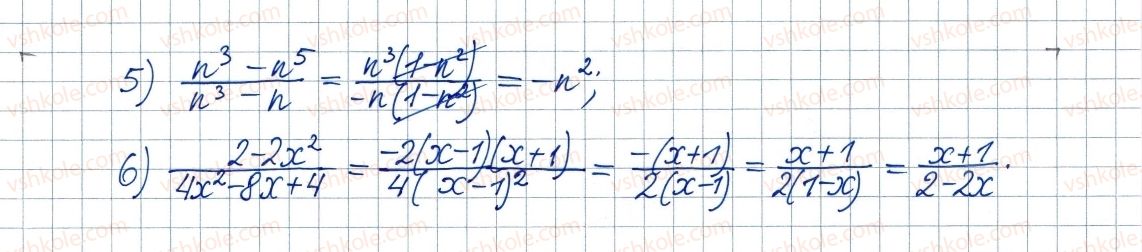 5) (n³ − n⁵)/(n³ − n) = n³(1−n²)/(−n(1−n²)) = −n²;
6) (2−2x²)/(4x²−8x+4) = −2(x−1)(x+1)/(4(x−1)²) = −(x+1)/(2(x−1)) = (x+1)/(2(1−x)) = (x+1)/(2−2x).
vshkole.com